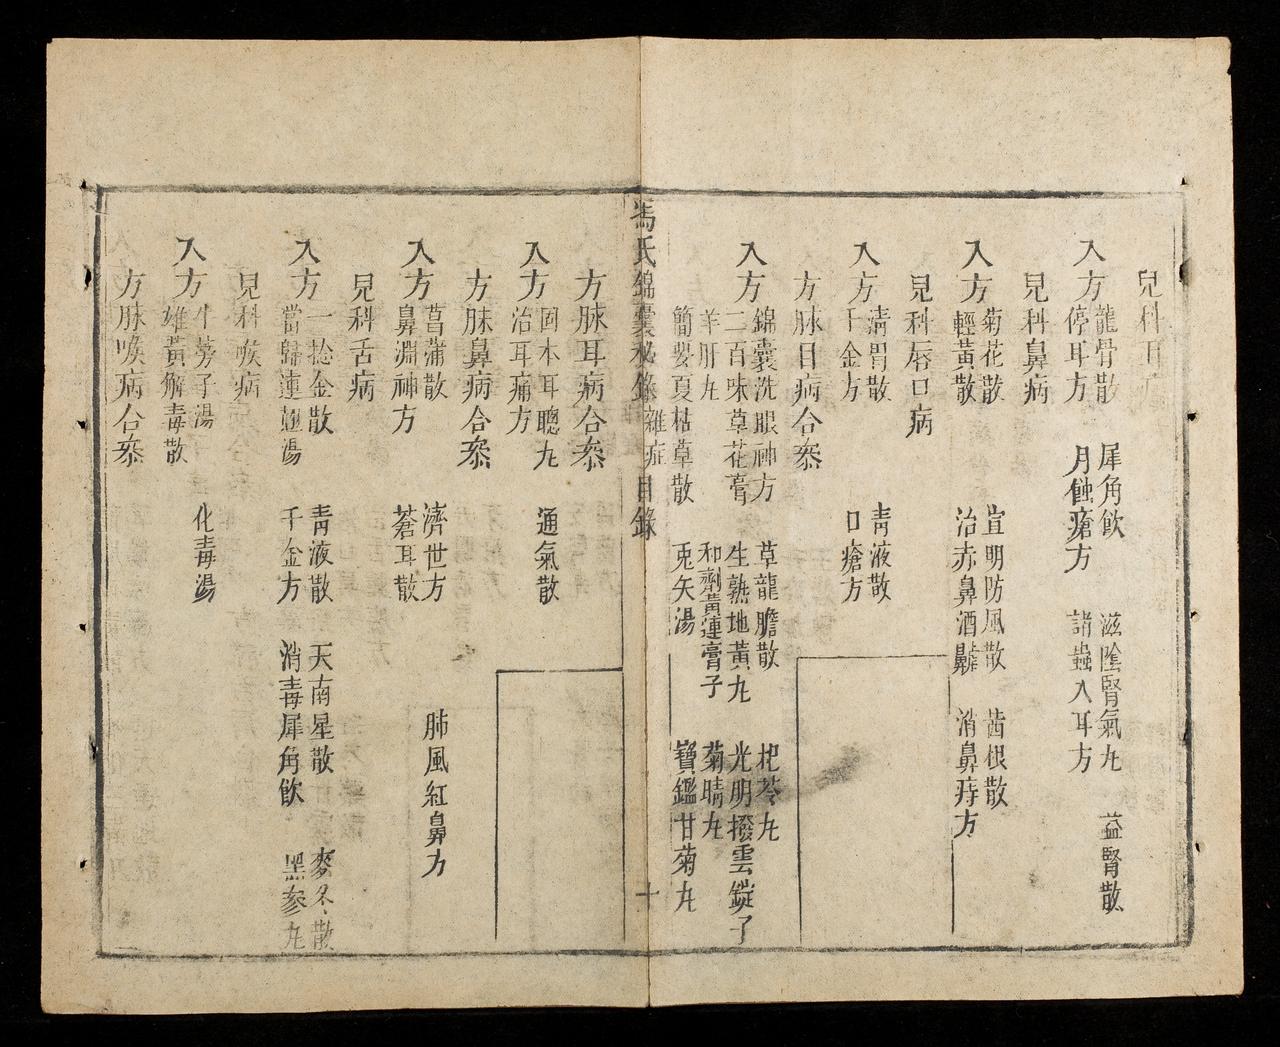 兒科耳病
入方
龍骨散 犀角飲 滋陰腎氣丸 益腎散
停耳方 月蝕瘡方 諸蟲入耳方
兒科鼻病
入方
菊花散 宣明防風散 茜根散
輕黃散 治赤鼻酒齄 消鼻痔方
兒科唇口病
入方
清胃散 青液散
千金方 口瘡方
方脉目病合叅
入方
錦囊洗眼神方 草龍膽散 杞苓丸
二百味草花膏 生熟地黃丸 光明撥雲錠子
羊肝丸 和劑黃連膏子 菊睛丸
簡要夏枯草散 兎矢湯 寶鑑甘菊丸
馮氏錦囊秘錄 雜症 目錄 十
方脉耳病合叅
入方
固本耳聰丸 通氣散
治耳痛方
方脉鼻病合叅
入方
菖蒲散 濟世方 肺風紅鼻方
鼻淵神方 蒼耳散
兒科舌病
入方
一捻金散 青液散 天南星散 麥冬散
當歸連翹湯 千金方 消毒犀角飲 黑參丸
兒科喉病
入方
牛蒡子湯 化毒湯
雄黃解毒散
方脉喉病合叅